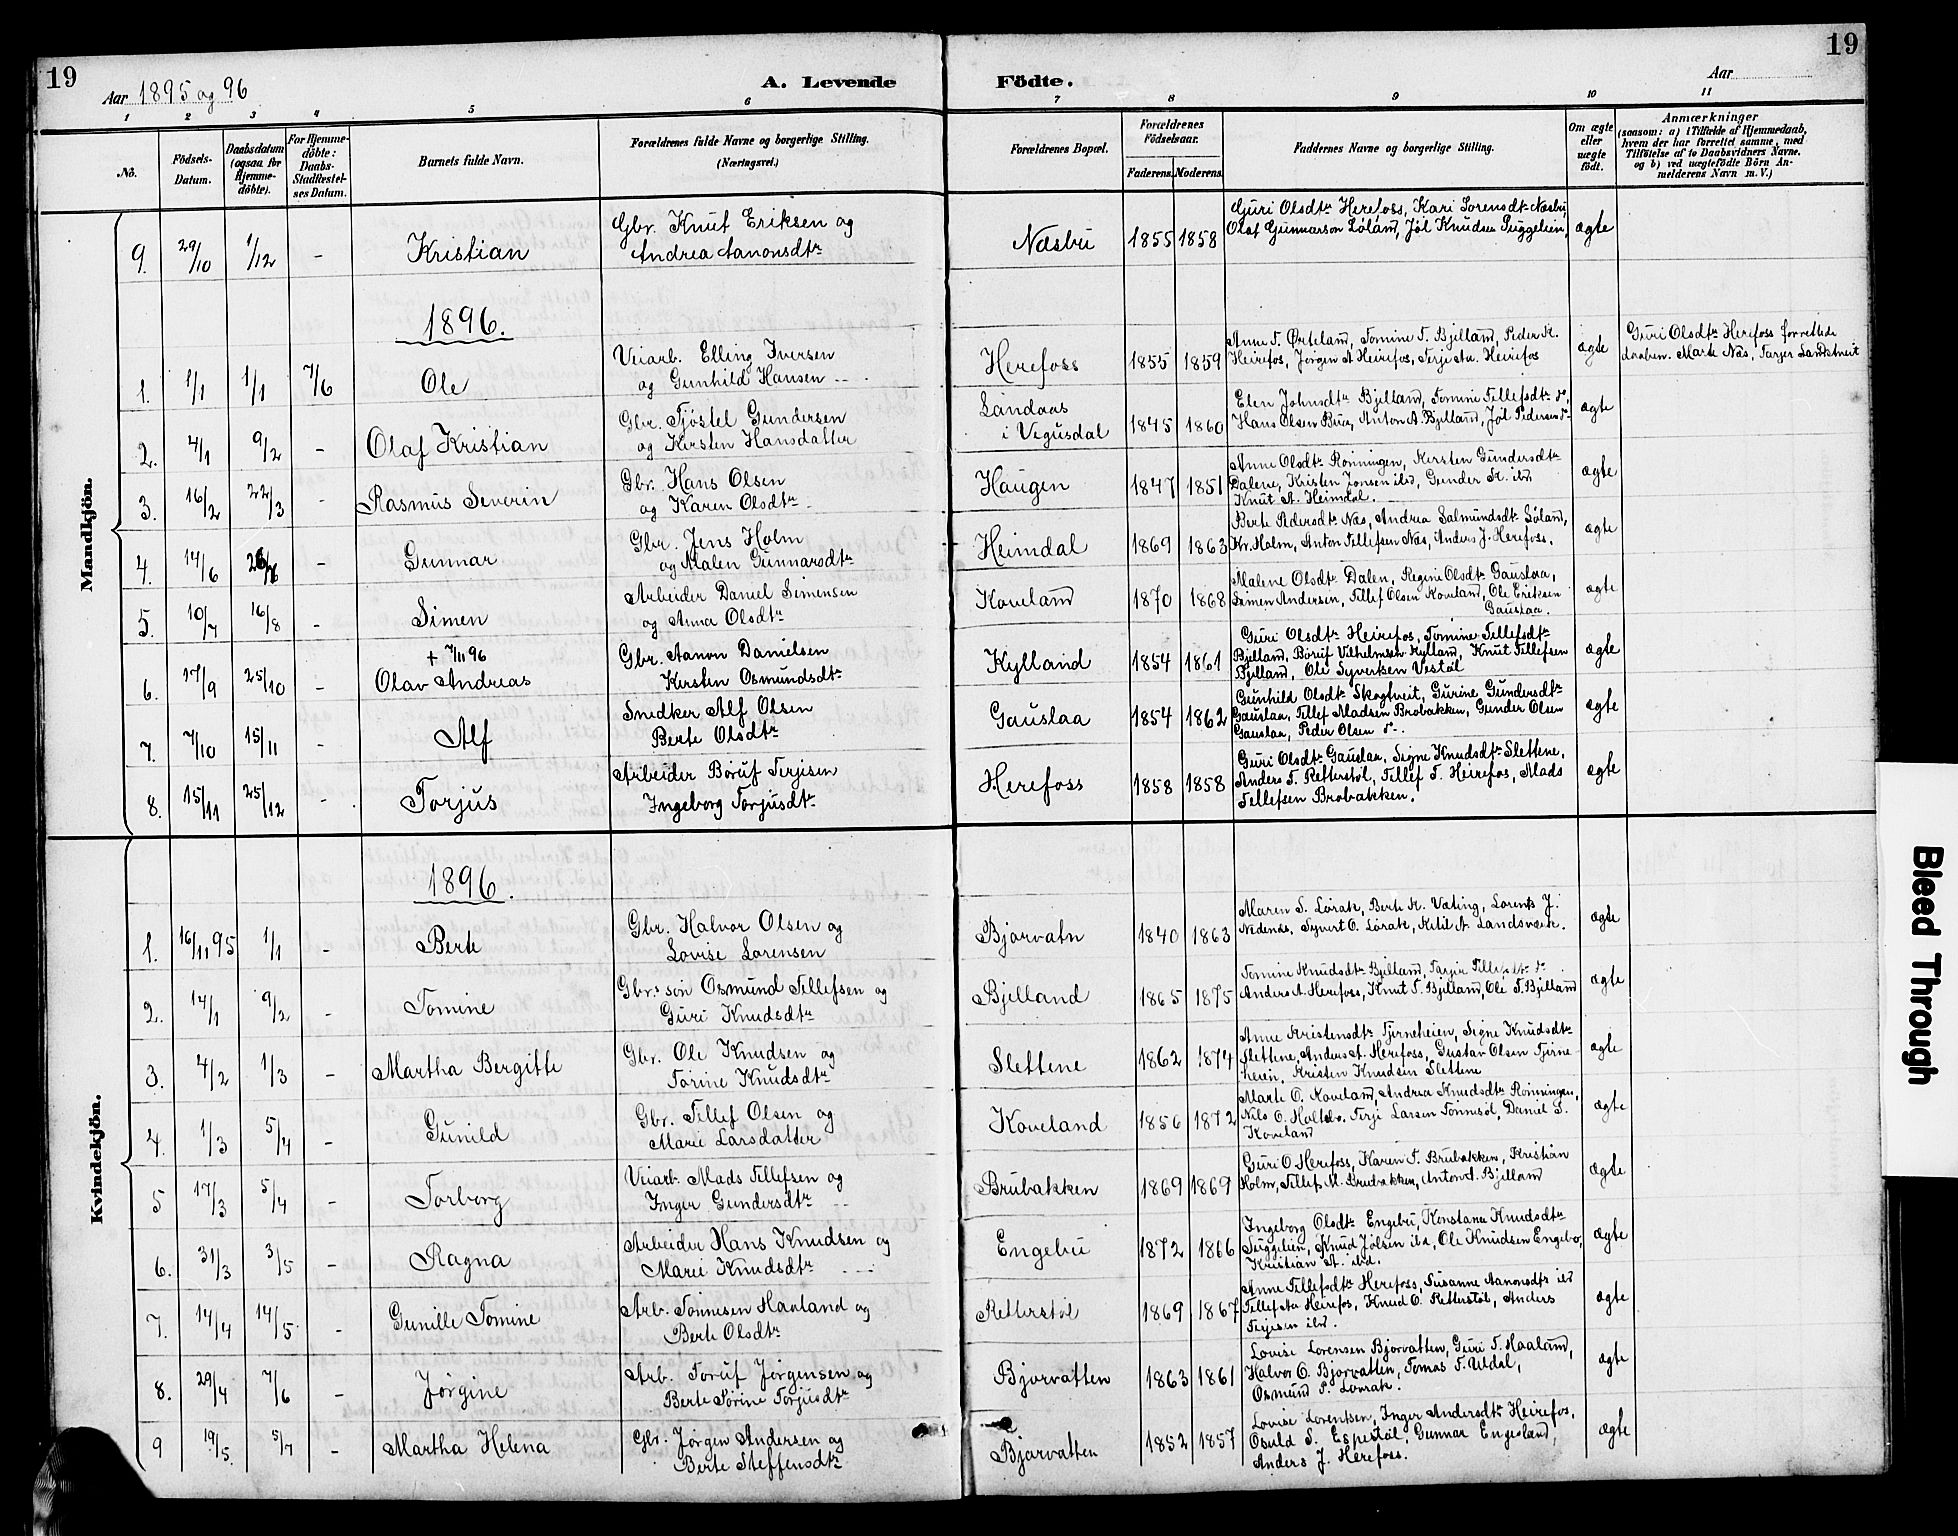 19
19
Aar 1895 og 96
A. Levende
Födte.
Aar
1 2 3 4 5 6 7 8 9 10 11
No.
Födsels-
Datum.
Daabsdatum
(ogsaa for
Hjemme-
döbte).
For Hjemme-
döbte:
Daabs-
Stadfæstel-
ses Datum.
Barnets fulde Navn.
Forældrenes fulde Navne og borgerlige Stilling.
(Næringsvei.)
Forældrenes Bopæl.
Forældrenes
Födselsaar.
Faderens. Moderens.
Faddernes Navne og borgerlige Stilling.
Om ægte
eller
uægte
födt.
Anmærkninger
(saasom: a) i Tilfælde af Hjemmedaab,
hvem der har forrettet samme, med
Tilföielse af to Daabsvidners Navne.
og b) ved uægtefödte Börn An-
melderens Navn m. V.)
Mandkjön.
9. 29/10 1/12 - Kristian
Gbr. Knut Eriksen og
Andrea Aanonsdtr
Næsbu 1855 1858
Guri Olsdtr Herefoss, Kari Sorensdtr Næsbu,
Olaf Gunnarson Løland, Jól Knudsen Suggelien,
ægte
1896.
1. 1/1 1/1 7/6 Ole
Veiarb. Elling Iversen
og Gunhild Hansen
Herefoss 1855 1859
Anne T. Ørteland, Tomine T. Bjelland, Peder K.
Heirefos, Jörgen A Heirefos, Terje Aa. Heirefos
ægte
Guri Olsdtr Herefoss forrettede
daaben. Marte Næs, Tarjer Landtveit
2. 4/1 9/2 - Olaf Kristian
Gbr. Tjöstel Gundersen
og Kirsten Hansdatter
Landaas
i Vegusdal 1845 1860
Elen Johnsdtr Bjelland, Tomine Tellefsdtr do,
Hans Olsen Bua, Anton A. Bjelland, Jól Pedersen do
ægte
3. 16/2 22/3 - Rasmus Severin
Gbr. Hans Olsen
og Karen Olsdtr
Haugen 1847 1851
Anne Olsdtr Rönningen, Kersten Gundersdtr
Dalene, Kristen Jonsen ibd, Gunder K. ibd
Knut A. Heimdal.
ægte
4. 14/6 Gunnar
Gbr. Jens Holm
og Malen Gunnarsdtr
Heimdal 1869 1863
Berte Pedersdtr Næs, Andrea Salmundsdtr Løland,
Kr. Holm, Anton Tellefsen Næs, Anders J. Herefoss.
ægte
5. 10/7 16/8 - Simen
Arbeider Daniel Simensen
og Anna Olsdtr
Koveland 1870 1868
Malene Olsdtr Dalen, Regine Olsdtr Gauslaa,
Simen Andersen, Tellef Olsen Koveland, Ole Eriksen
Gauslaa.
ægte
6. 17/9 25/10 - + 7/11 96
Olav Andreas
Gbr. Aanon Danielsen
Kirsten Osmundsdtr
Kylland 1854 1861
Guri Olsdtr Heirefos, Tomine Tellefsdtr
Bjelland, Boruf Vilhelmsen Kylland, Knut Tellefsen
Bjelland, Ole Syvertsen Vestøl
ægte
7. 7/10 15/11 - Alf
Snedker Alf Olsen
Berte Olsdtr
Gauslaa 1854 1862
Gunhild Olsdtr Skogtveit, Gurine Gundersdtr
Gauslaa, Tellef Madsen Brobakken, Gunder Olsen
Gauslaa, Peder Olsen do.
ægte
8. 15/11 25/12 - Torjus
Arbeider Boruf Terjesen
Ingeborg Torjusdtr
Herefoss 1858 1858
Guri Olsdtr Gauslaa, Signe Knudsdtr Slettene,
Anders T. Retterstøl, Tellef T. Heirefos, Mads
Tellefsen Brobakken.
ægte
Kvindekjön.
1896.
1. 16/11 95 1/1 - Berte
Gbr. Halvor Olsen og
Lovise Lorensen
Bjorvatn 1840 1863
Maren S. Lörak, Berte K. Væting, Lorents J.
Nedenes, Syvert O. Lörak, Ketil A.
ægte
2. 14/1 9/2 - Tomine
Gbr. sön Osmund Tellefsen og
Guri Knudsdtr
Bjelland 1865 1875
Tomine Knudsdtr Bjelland,
Anders A. Herefoss, Knut T. Bjelland, Ole T. Bjelland
ægte
3. 4/2 1/3 - Martha Bergitte
Gbr. Ole Knudsen og
Torine Knudsdtr
Slettene 1862 1874
Anne Kristensdtr Tjirneheien, Signe Knudsdtr
Slettene, Anders A. Herefoss, Gustav Olsen Tjirne-
heien, Kristen Knudsen Slettene
ægte
4. 1/3 5/4 - Gunild
Gbr. Tellef Olsen og
Marie Larsdatter
Koveland 1856 1872
Marte O. Koveland, Andrea Knudsdtr Rönningen,
Nils O. Terje Larsen Daniel S.
Koveland
ægte
5 17/3 5/4 - Torborg
Veiarb. Mads Tellefsen og
Inger Gundersdtr
Brubakken 1869 1869
Guri O. Herefoss, Karen T. Brubakken, Kristian
Holm, Tellef M. Brubakken, Anton A. Bjelland
ægte
6. 31/3 3/5 - Ragna
Arbeider Hans Knudsen og
Marie Knudsdtr
Engebu 1872 1866
Ingeborg Olsdtr Engebu, Konstanse Knudsdtr
Suggelien, Knud Jølsen ibd, Ole Knudsen Engebo,
Kristian A. ibd.
ægte
7. 14/4 14/5 - Gunille Tomine
Arb. Tönnesen Haaland og
Berte Olsdtr
Retterstøl 1869 1867
Anne Tellefsdtr Herefoss, Susanne Aanonsdtr ibd
Tellef Aa Heirefos, Knud O. Retterstøl, Anders
Terjesen ibd.
ægte
8. 29/4 7/6 - Jørgine
Arb. Toruf Jørgensen og
Berte Torine Torjusdtr
Bjorvatten 1863 1861
Lovise Lorensen Bjorvatten, Guri T. Haaland,
Halvor O. Bjorvatten, Tomas T. Uldal,
Osmund T. Lovrak.
ægte
9 19/5 5/7 - Martha Helena
Gbr. Jørgen Andersen og
Berte Steffensdtr
Bjorvatten 1852 1857
Lovise Lorentsen, Inger Andersdtr Heirefos,
Osuld S. Espestøl, Gunnar Engesland,
Anders J. Herefoss.
ægte
Bleed Through